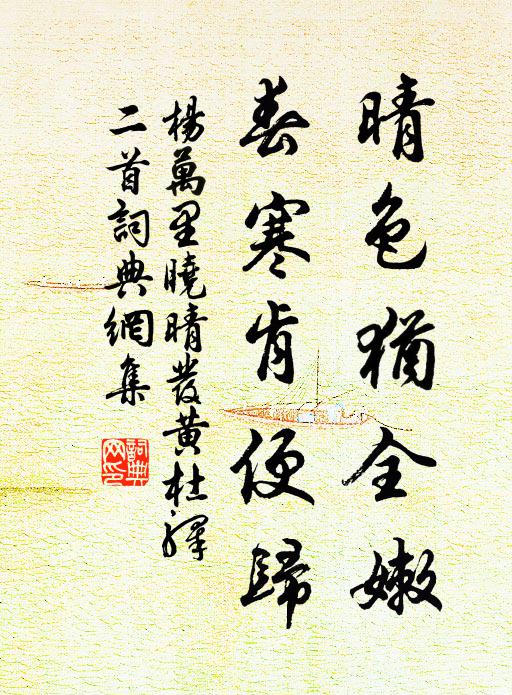 晴色猶全嫩
春寒肯便歸
楊萬里曉晴發黃杜驛
二首詞典網集
詞典
网印